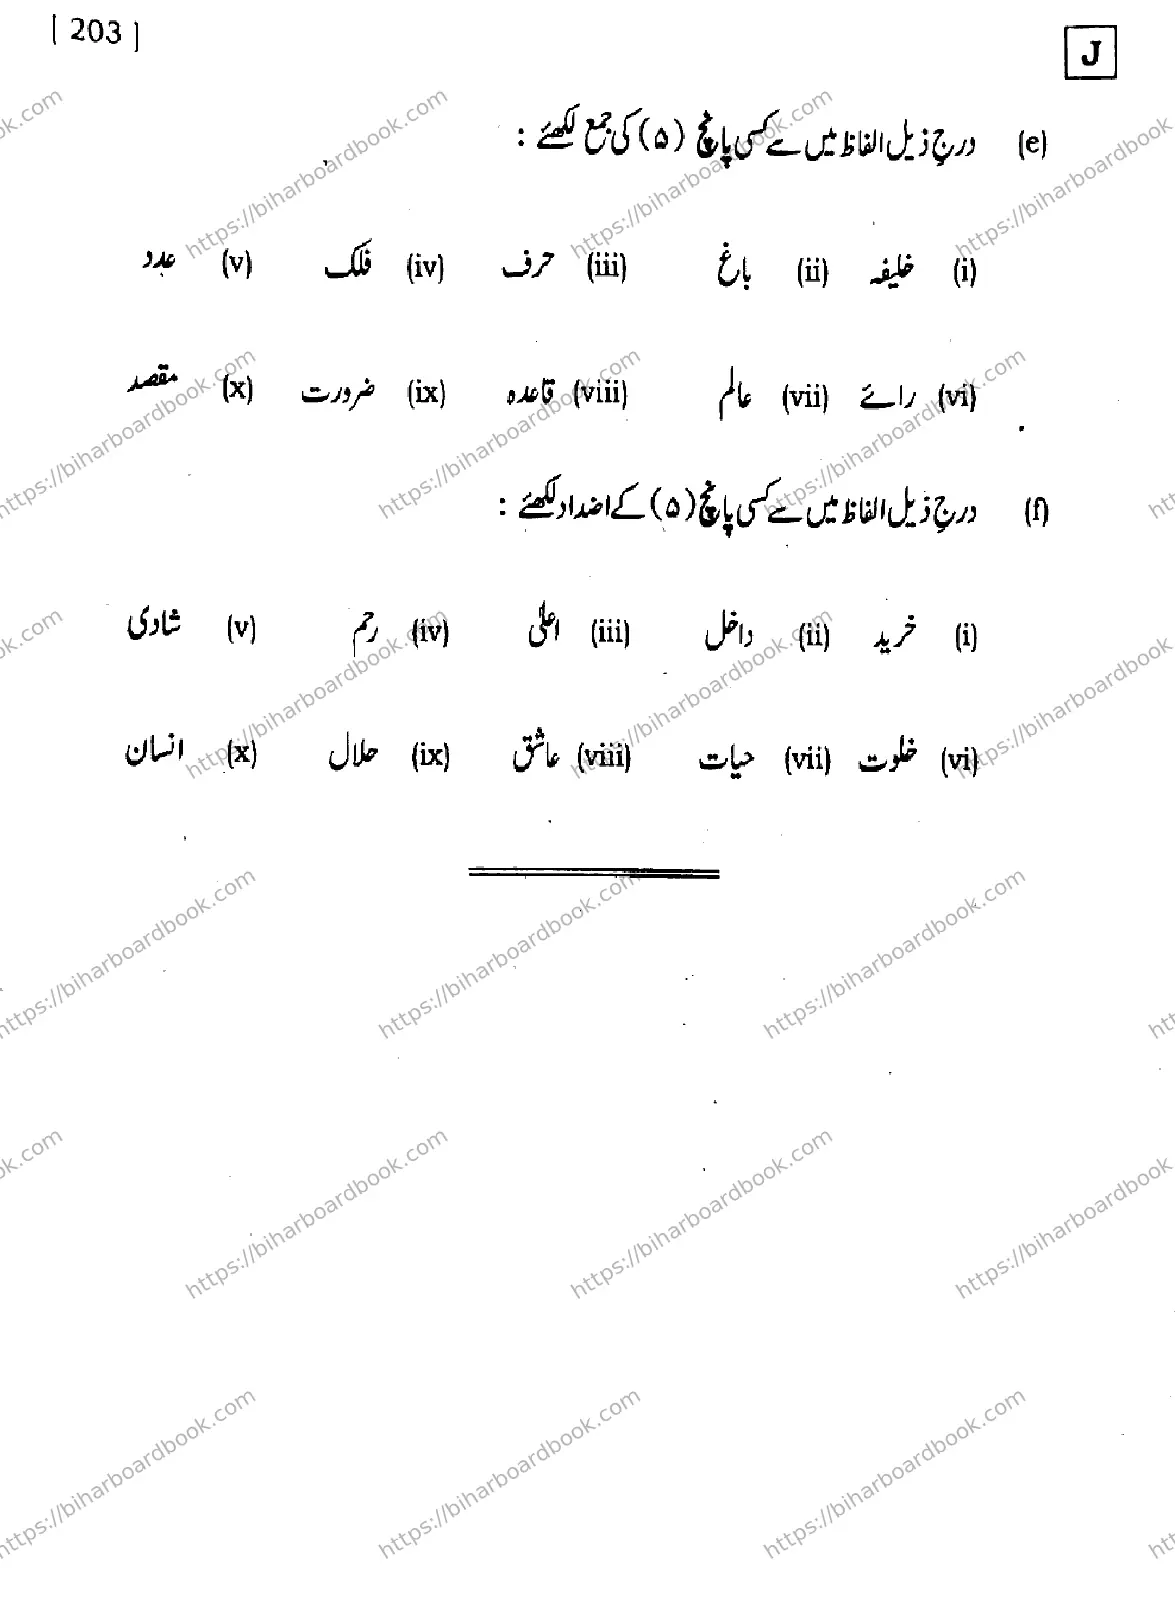 [ 203 ]
J
(e) درجِ ذیل الفاظ میں سے کسی پانچ (۵) کی جمع لکھئے :
(i) خلیفہ (ii) باغ (iii) حرف (iv) فلک (v) عدد
(vi) رائے (vii) عالم (viii) قاعدہ (ix) ضرورت (x) مقصد
(f) درجِ ذیل الفاظ میں سے کسی پانچ (۵) کے اضداد لکھئے :
(i) خرید (ii) داخل (iii) اعلیٰ (iv) رحم (v) شادی
(vi) خلوت (vii) حیات (viii) عاشق (ix) حلال (x) انسان
https://biharboardbook.com